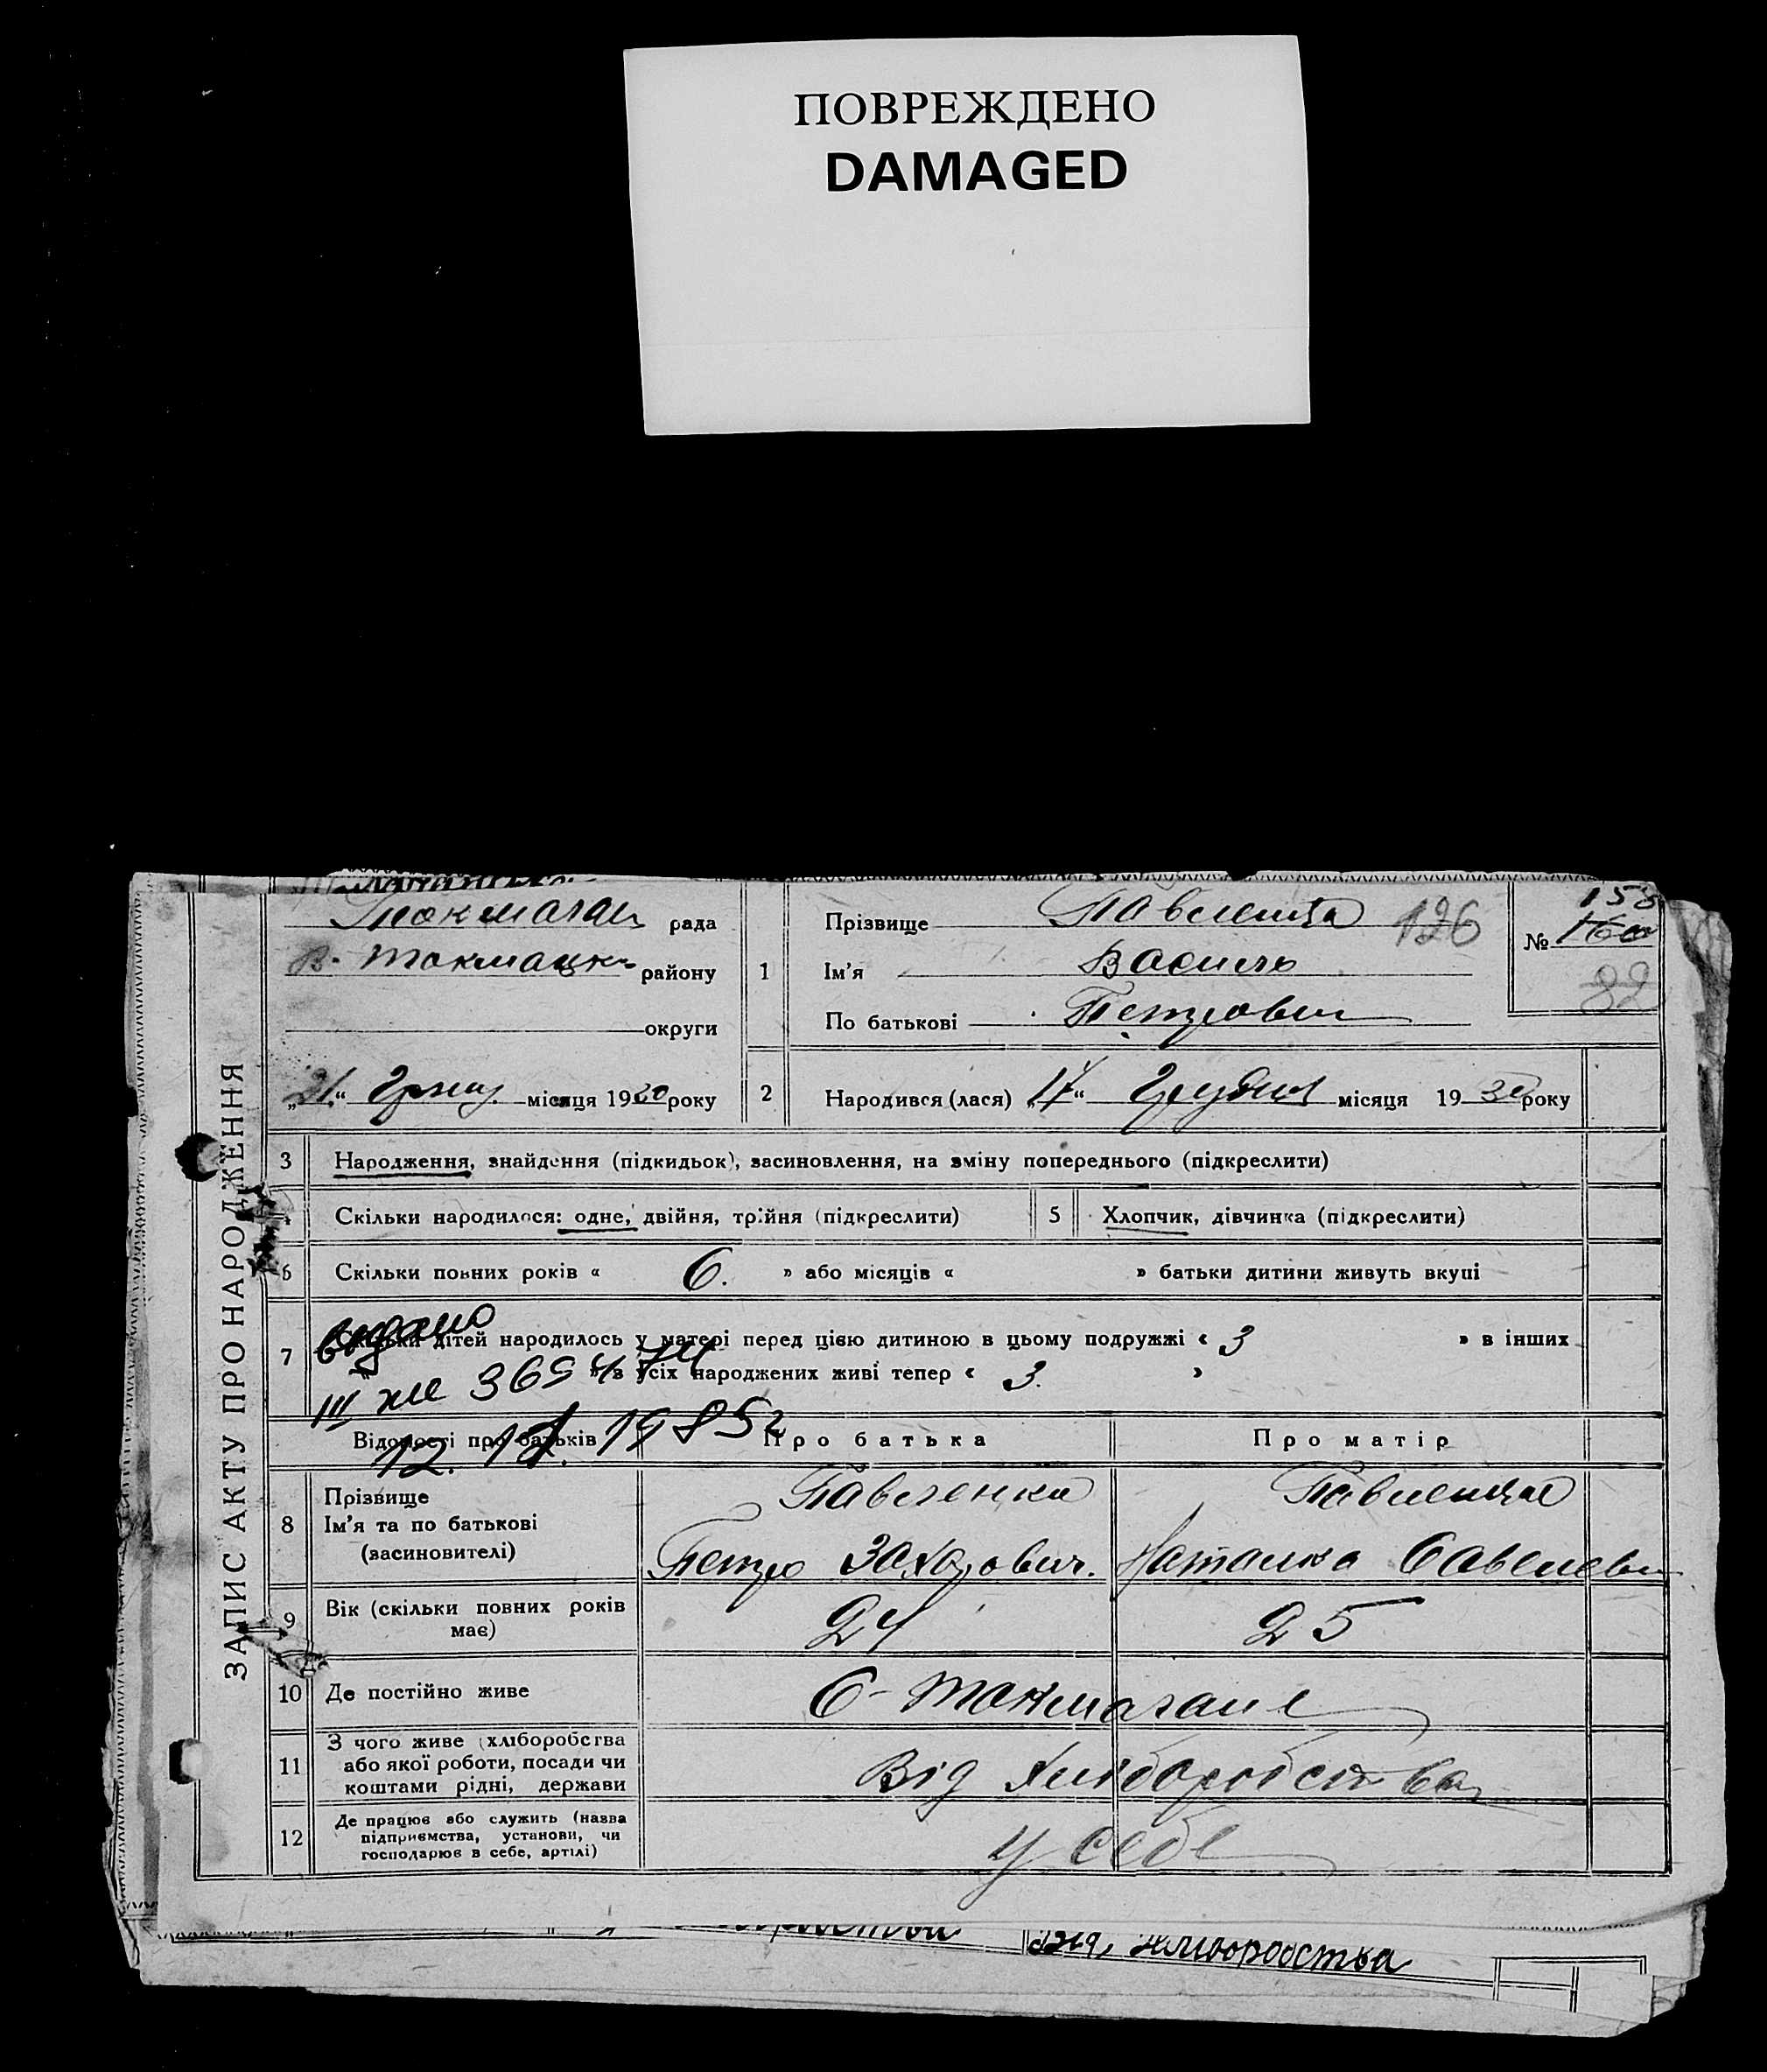 ПОВРЕЖДЕНО
DAMAGED
ЗАПИС АКТУ ПРО НАРОДЖЕННЯ
Токмачан рада
В-Токмацьк району
округи
„21“ Грудн. місяця 1930 року
1
Прізвище Павленка 126
Ім'я Василь
По батькові Петрович
№ 160 158
82
2 Народився (лася) „17“ Грудня місяця 1930 року
3 Народження, знайдення (підкидьок), засиновлення, на зміну попереднього (підкреслити)
4 Скільки народилося: одне, двійня, трійня (підкреслити) 5 Хлопчик, дівчинка (підкреслити)
6 Скільки повних років « 6. » або місяців « » батьки дитини живуть вкупі
7 Скільки дітей народилось у матері перед цією дитиною в цьому подружжі « 3 » в інших
« » з усіх народжених живі тепер « 3. »
видано
III жс 365474
12. 1985г
Відомості про батьків Про батька Про матір
8
Прізвище Павленко Павленко
Ім'я та по батькові
(засиновителі) Петро Захарович. Наталка Савелевн
9 Вік (скільки повних років має) 24 25
10 Де постійно живе С-Токмачане
11 З чого живе (хліборобства
або якої роботи, посади чи
коштами рідні, держави Від Хліборобства
12 Де працює або служить (назва
підприємства, установи, чи
господарює в себе, артілі) у себе
Від Хліборобства